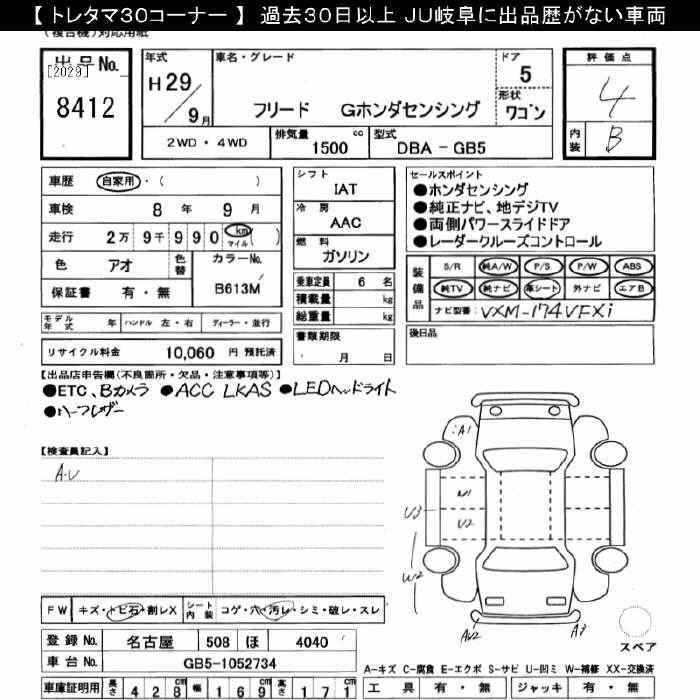 【 トレタマ30コーナー 】 過去30日以上 JU岐阜に出品歴がない車両
(複合機)対応用紙
出品No.
[2029]
8412
年式
H29/9月
車名・グレード
フリード Gホンダセンシング
ドア
5
形状
ワゴン
2WD・4WD
排気量
1500 cc
型式
DBA - GB5
評価点
4
内装
B
車歴 自家用・( )
車検 8年 9月
走行 2万 9千 990 km マイル ( )
色 アオ
色替
カラーNo. B613M
保証書 有・無
シフト
IAT
冷房
AAC
燃料
ガソリン
乗車定員 6 名
積載量 kg
総重量 kg
書類期限
月 日
モデル年式 年 ハンドル 左・右 ディーラー・並行
リサイクル料金 10,060 円 預託済
セールスポイント
●ホンダセンシング
●純正ナビ、地デジTV
●両側パワースライドドア
●レーダークルーズコントロール
装備品
S/R 純A/W P/S P/W ABS
純TV 純ナビ 革シート 外ナビ エアB
ナビ型番: VXM-174VFXi
後日品
【出品店申告欄(不良箇所・欠品・注意事項等)】
●ETC、Bカメラ ●ACC LKAS ●LEDヘッドライト
●ハーフレザー
【検査員記入】
A・U
A1
W1
U2
U3
W2
AU2
A3
スペア
FW キズ・トビ石・割レX
シート内装 コゲ・穴・汚レ・シミ・破レ・スレ
登録No. 名古屋 508 ほ 4040
車台No. GB5-1052734
車庫証明用 長さ 428cm 幅 169cm 高さ 171cm
A-キズ C-腐食 E-エクボ S-サビ U-凹ミ W-補修 XX-交換済
工具 有・無 ジャッキ 有・無